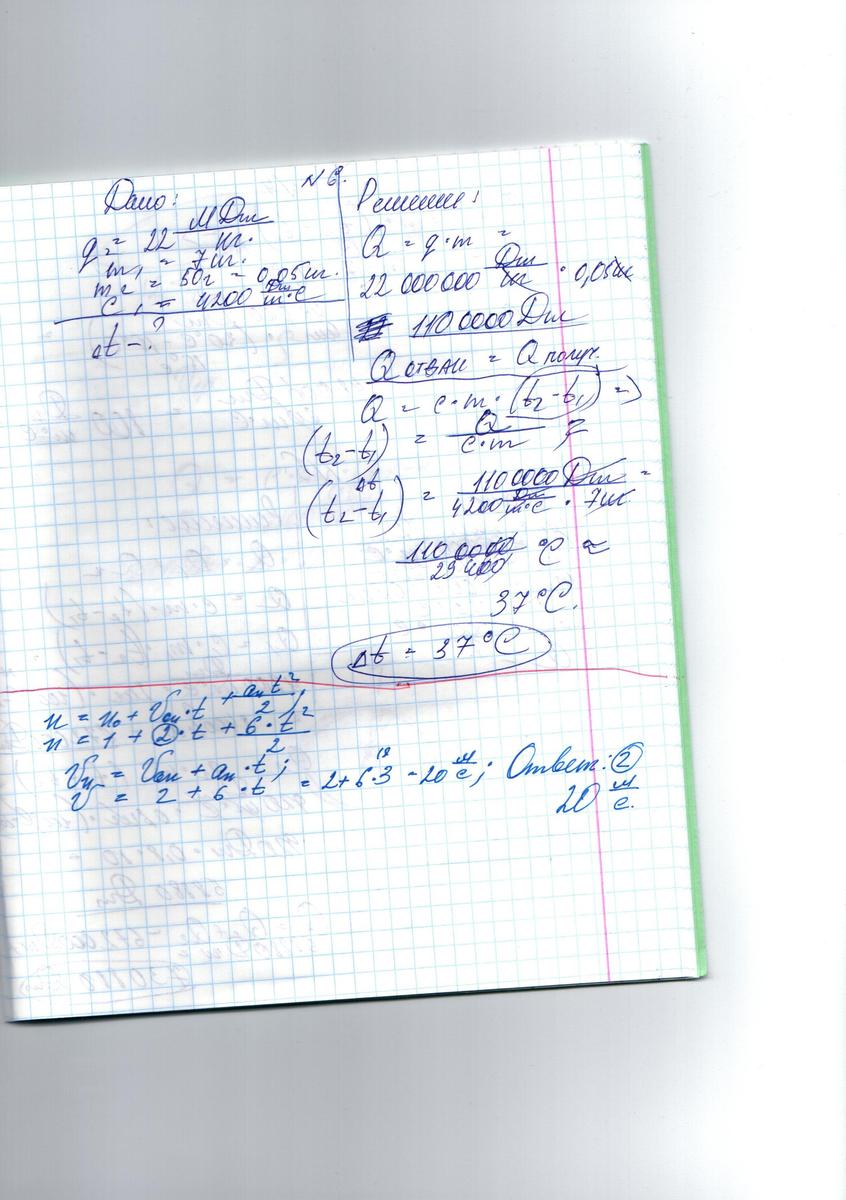 N 6.
Дано:
q₂ = 22 МДж/кг.
m₁ = 7кг.
m₂ = 50г = 0,05кг.
c₁ = 4200 Дж/кг·°C
Δt - ?
Решение:
Q = q·m =
22 000000 Дж/кг · 0,05кг
= 1100000 Дж
Q отвал = Q получ.
Q = c·m·(t₂-t₁) =>
(t₂-t₁) = Q/c·m ;
Δt
(t₂-t₁) = 1100000 Дж/4200 Дж/кг·°C · 7кг =
1100000/29400 °C ≈
37°C.
Δt = 37°C
x = x₀ + V₀ₓ·t + aₓt²/2;
x = 1 + 2·t + 6·t²/2
Vₓ = V₀ₓ + aₓ·t;
V = 2 + 6·t = 2+6·3 = 20 м/с; Ответ: 2
18
20 м/с.